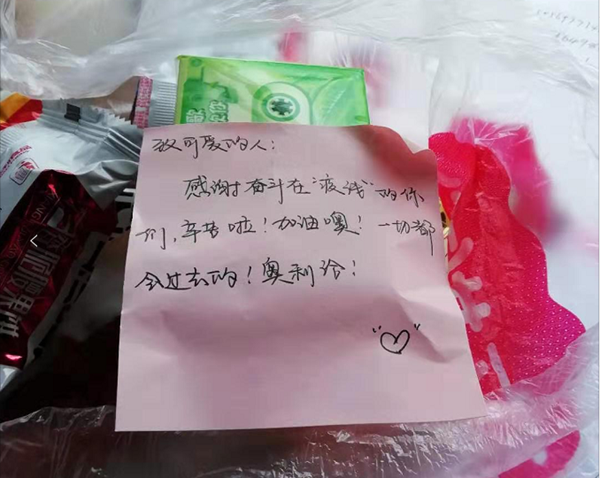 致可爱的人:
感谢奋斗在"疫线"的你
们,辛苦啦!加油噢!一切都
会过去的!奥利给!